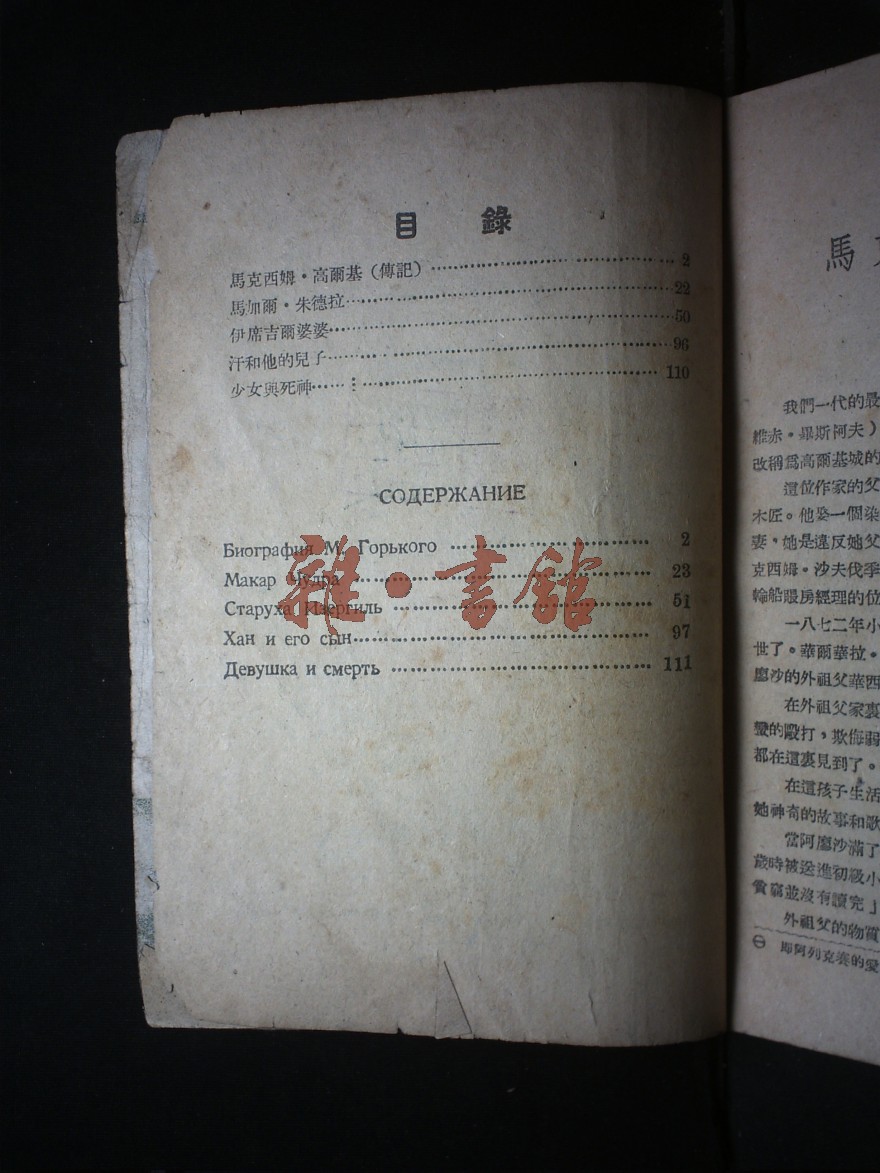 目 錄
馬克西姆·高爾基(傳記)··················2
馬加爾·朱德拉··················22
伊席吉爾婆婆··················50
汗和他的兒子··················96
少女與死神··················110
СОДЕРЖАНИЕ
Биография М. Горького ··················2
Макар Чудра ··················23
Старуха Изергиль ··················51
Хан и его сын··················97
Девушка и смерть ··················111
雜·書館
馬
我們一代的最
維赤·畢斯阿夫)
改稱爲高爾基城的
這位作家的父
木匠。他娶一個染
妻,她是違反她父
克西姆·沙夫伐季
輪船賬房經理的位
一八七二年小
世了。華爾華拉。
廖沙的外祖父華西
在外祖父家裏
蠻的毆打,欺侮弱
都在這裏見到了。
在這孩子生活
她神奇的故事和歌
當阿廖沙滿了
歲時被送進初級小
貧窮並沒有讀完」
外祖父的物質
㊀ 即阿列克賽的愛